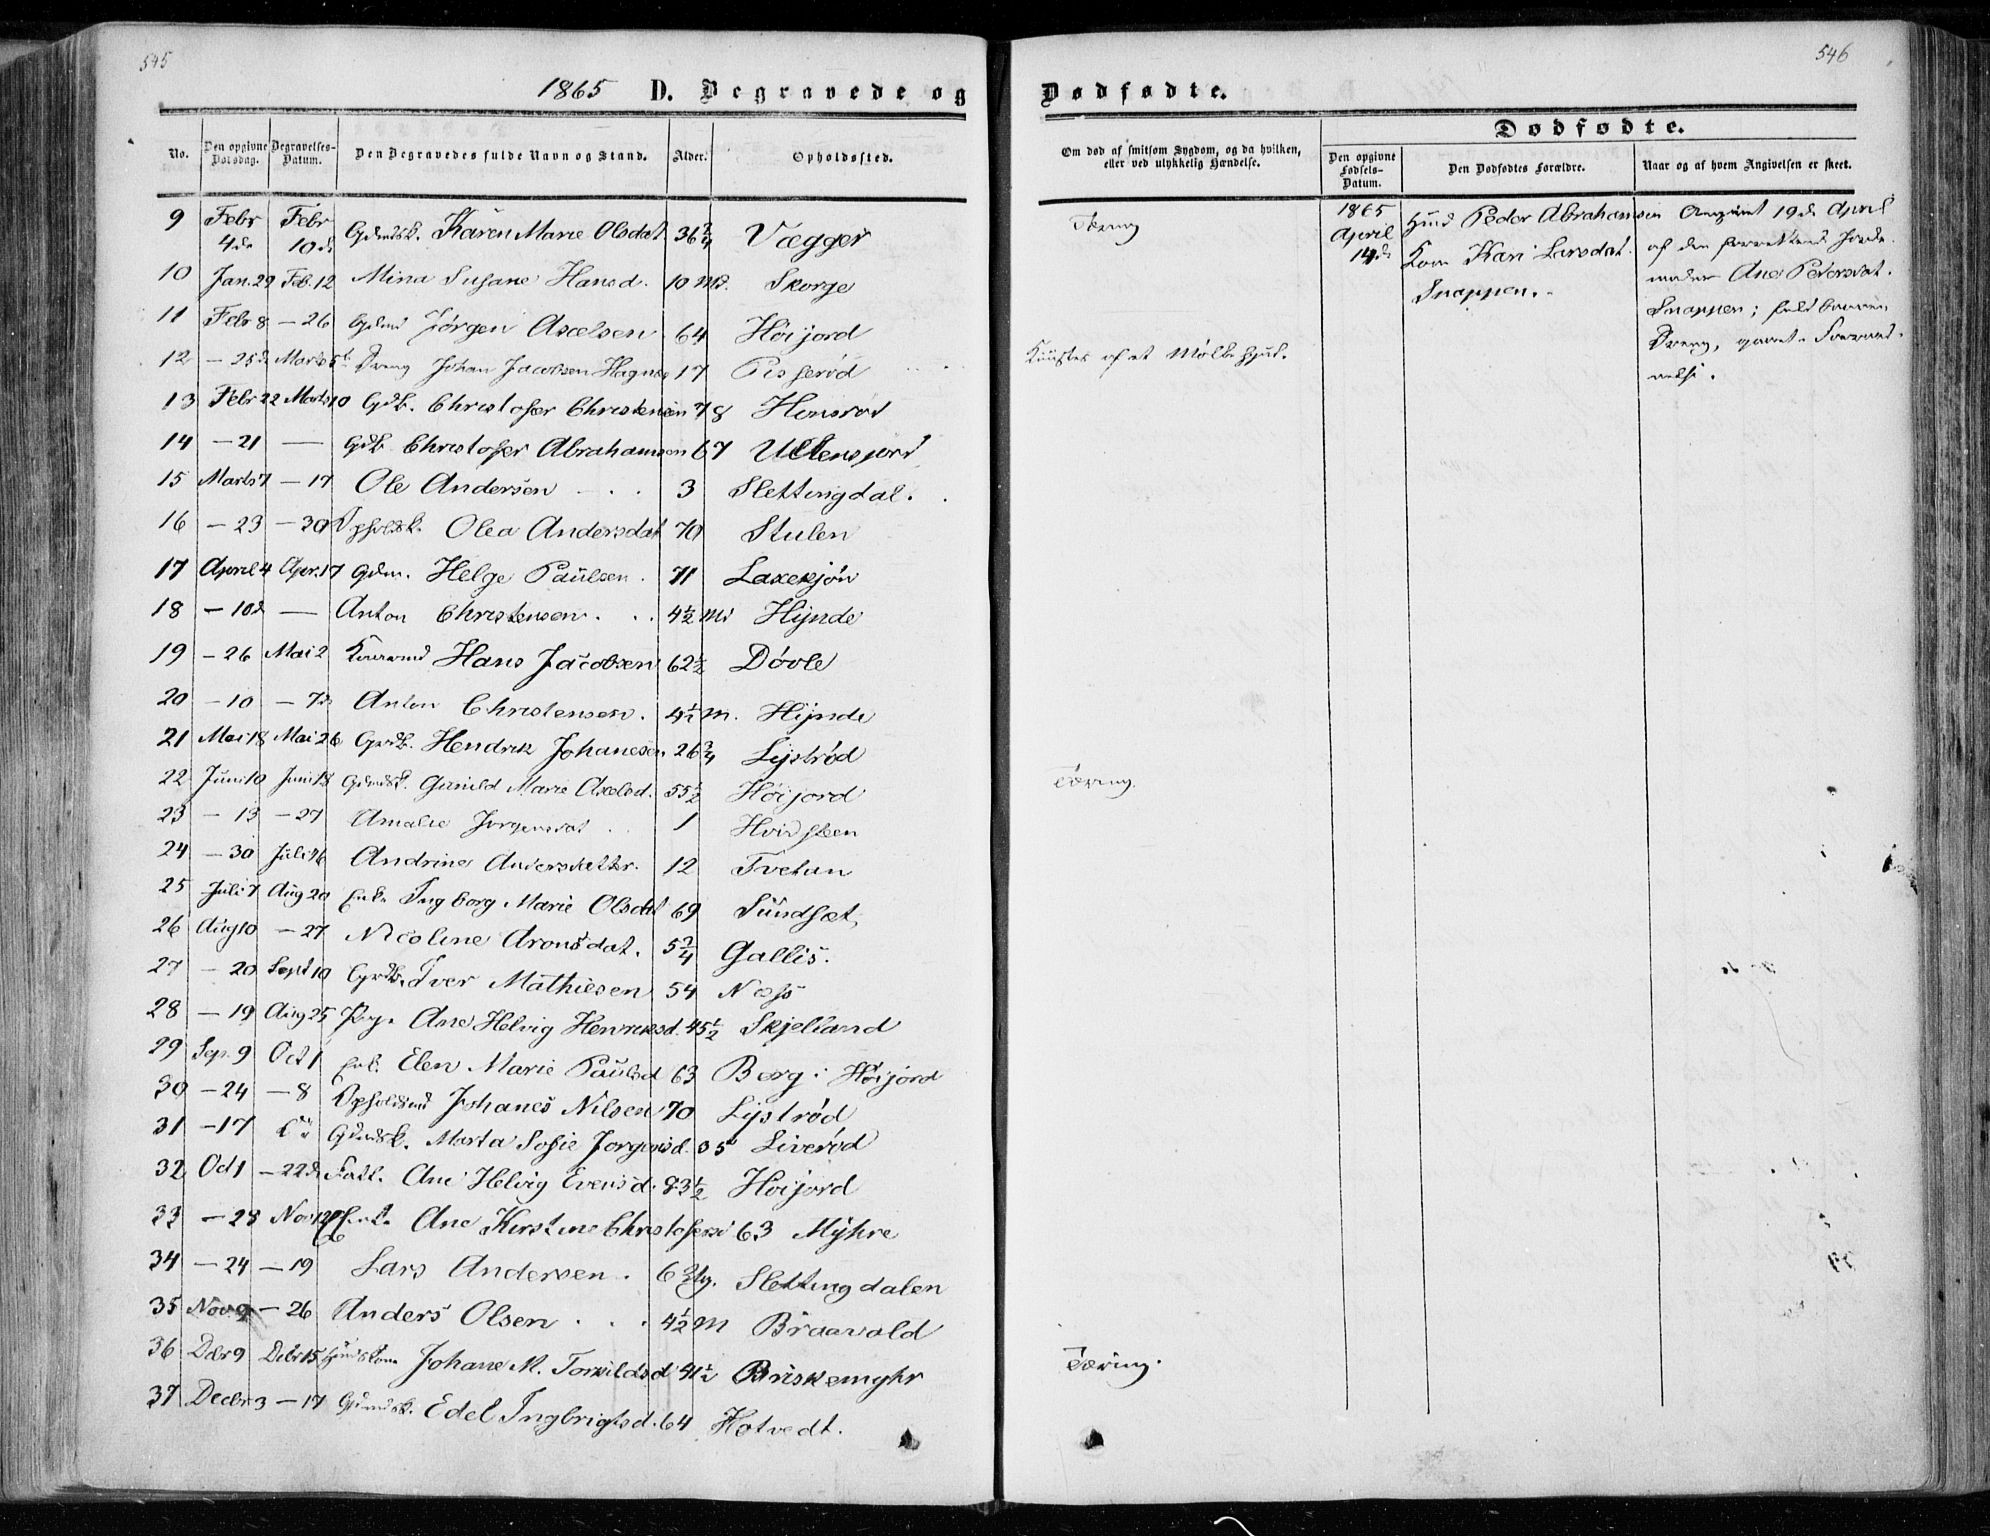 545
1865 D. Begravede og
No. Den opgivne Dødsdag. Begravelses-Datum. Den Begravedes fulde Navn og Stand. Alder. Opholdssted.
9 Febr 4de Febr 10de Gdmdsk. Karen Marie Olsdat 36 3/4 Vegger
10 Jan. 29 Feb. 12 Mina Susane Hansd. 10 Md. Skorge
11 Febr 8 — 26 Gdmd Jørgen Axelsen 64 Høijord
12 — 25de Marts 5te Dreng Johan Jacobsen Hagnes 17 Pisserød
13 Febr 22 Marts 10 Gdb. Christofer Christensen 78 Honsrød
14 — 21 — Gdb. Christofer Abrahamsen 67 Ullensjord
15 Marts 7 — 17 Ole Andersen 3 Slettingdal.
16 — 23 — 30 Opholdsk. Olea Andersdat 70 Stulen
17 April 4 Apr. 17 Gdm. Helge Paulsen. 71 Laxekjøn
18 — 10de — Anton Christensen. 4 1/2 Md Hynde
19 — 26 Mai 2 Hans Jacobsen 62 1/2 Døvle
20 — 10 — 7de Anton Christensen. 4 1/2 M. Hynde
21 Mai 18 Mai 26 Gdb. Hendrik Johanesen 26 3/4 Lystrød
22 Juni 10 Juni 18 Gdmdsk. Gunild Marie Axelsd. 55 1/2 Høijord
23 — 13 — 27 Amalie Jørgensdat 1 Hvidsteen
24 — 30 Juli 16 Andrine Andersdatter. 12 Tvetan
25 Juli 7 Aug 20 Enk. Ingborg Marie Olsdat 69 Sundset
26 Aug 10 — 27 Nicoline Aronsdat. 5 3/4 Gallis.
27 — 20 Sept 10 Gdb. Iver Mathiesen 54 Næss
28 — 19 Aug 25 Pige Ane Helvig Henriksd. 45 1/2 Skjelland
29 Sep. 9 Oct 1 Enk. Elen Marie Paulsd 63 Berg i Høijord
30 — 24 — 8 Opholdsmd Johanes Nilsen 70 Lystrød
31 — 17 Gdmdsk. Marta Sofie Jorgensd. 35 Liverød
32 Oct 1 — 22de Fatt. Ane Helvig Evensd. 83 1/2 Høijord
33 — 28 Nov 12 Enk. Ane Kirstine Christofersd 63 Myhre
34 — 24 — 19 Lars Andersen. 6 Slettingdalen
35 Nov. 9 — 26 Anders Olsen 4 1/2 M Braavold
36 Decbr 9 Debr 15 Huuskone Johane M. Torkildsd 41 1/2 Briskemyhr
37 Decbr 3 — 17 Gdmdsk. Edel Ingbrigtsd. 64 Hotvedt.
546
Dødfødte.
Om død af smitsom Sygdom, og da hvilken, eller ved ulykkelig Hændelse.
Dødfødte.
Den opgivne Fødsels-Datum. Den Dødfødtes Forældre. Naar og af hvem Angivelsen er skeet.
Tæring
Knustes af et Mølle Hjul.
Tæring.
Tæring.
1865 April 14de
Husmd Peder Abrahamsen
Kone Kari Larsdat.
Snappen.
Angivet 19de April
af den
moder Ane Pedersdat.
Snappen;
Dreng,